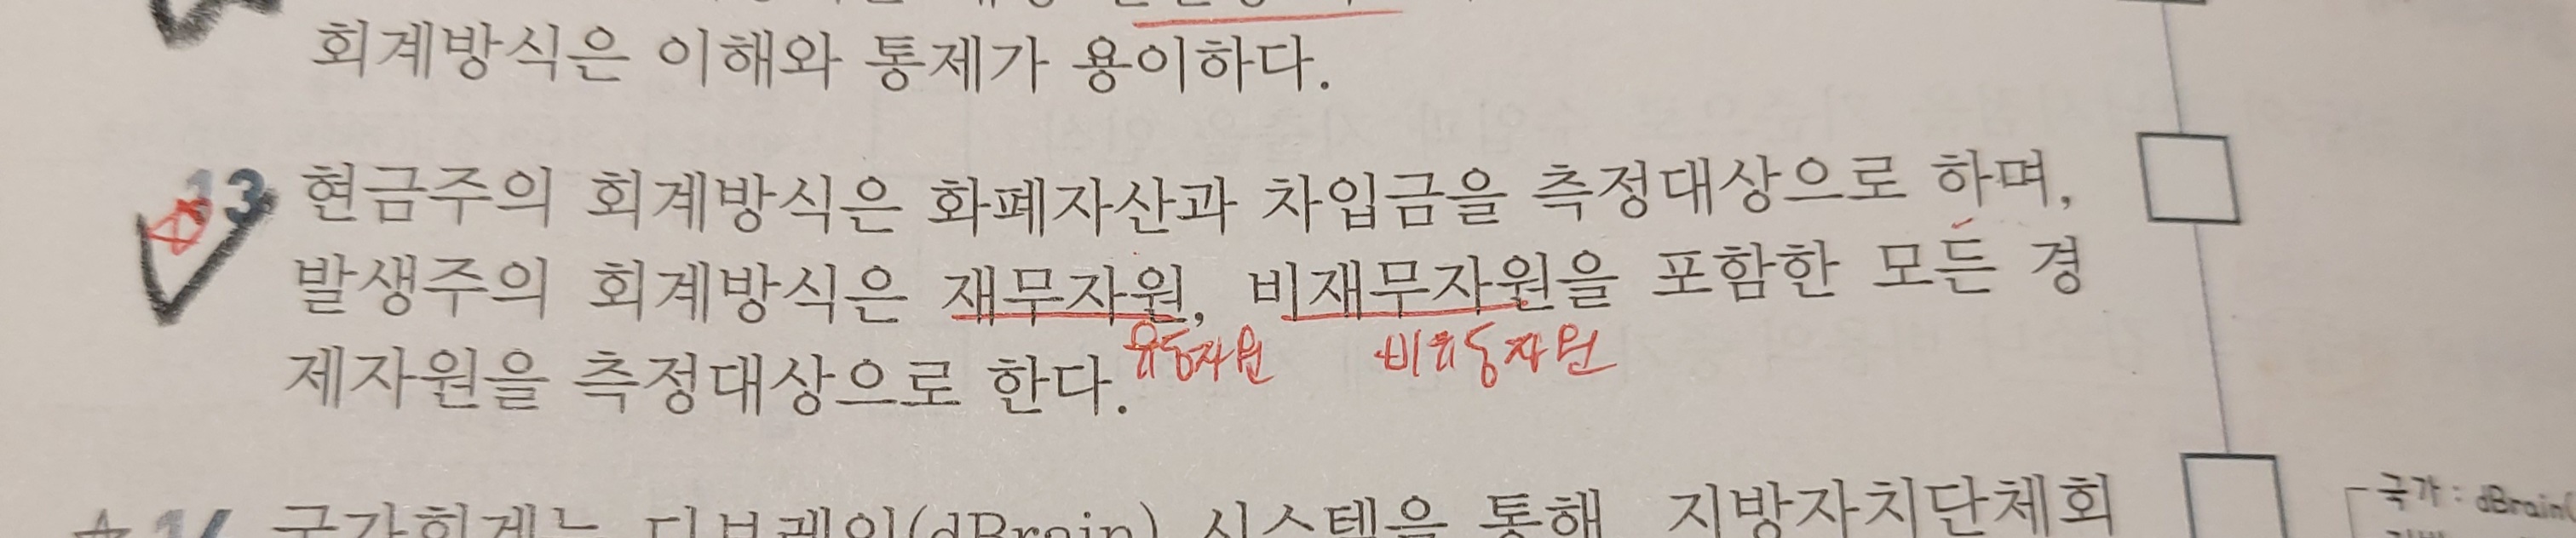 회계방식은 이해와 통제가 용이하다.
13 현금주의 회계방식은 화폐자산과 차입금을 측정대상으로 하며,
발생주의 회계방식은 재무자원, 비재무자원을 포함한 모든 경
유동자원 비유동자원
제자원을 측정대상으로 한다.
국가회계는 디브레인(dBrain) 시스템을 통해 지방자치단체회
국가 : dBrain(